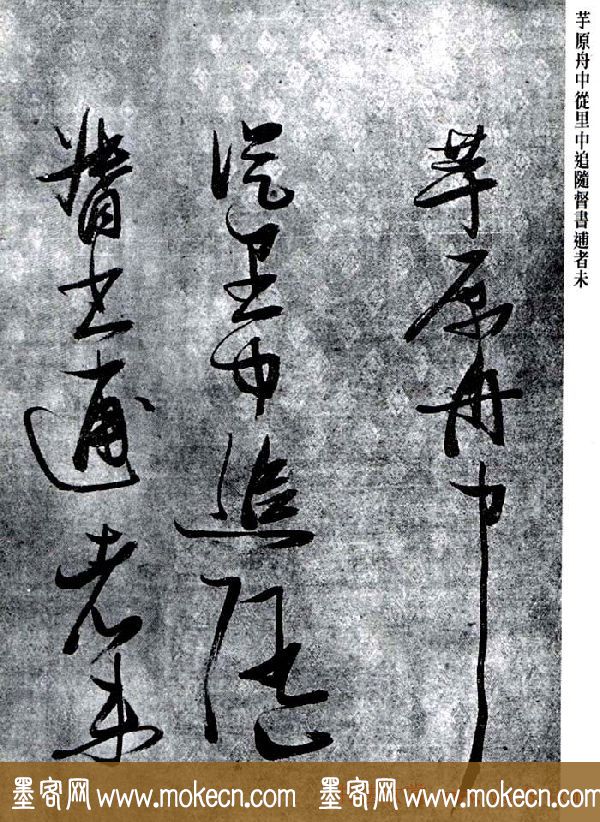 芋原舟中從里中追隨督書逋者未
芋原舟中
從里中追隨
督書逋者未
墨客网 www.mokecn.com 墨客网 www.mokecn.com